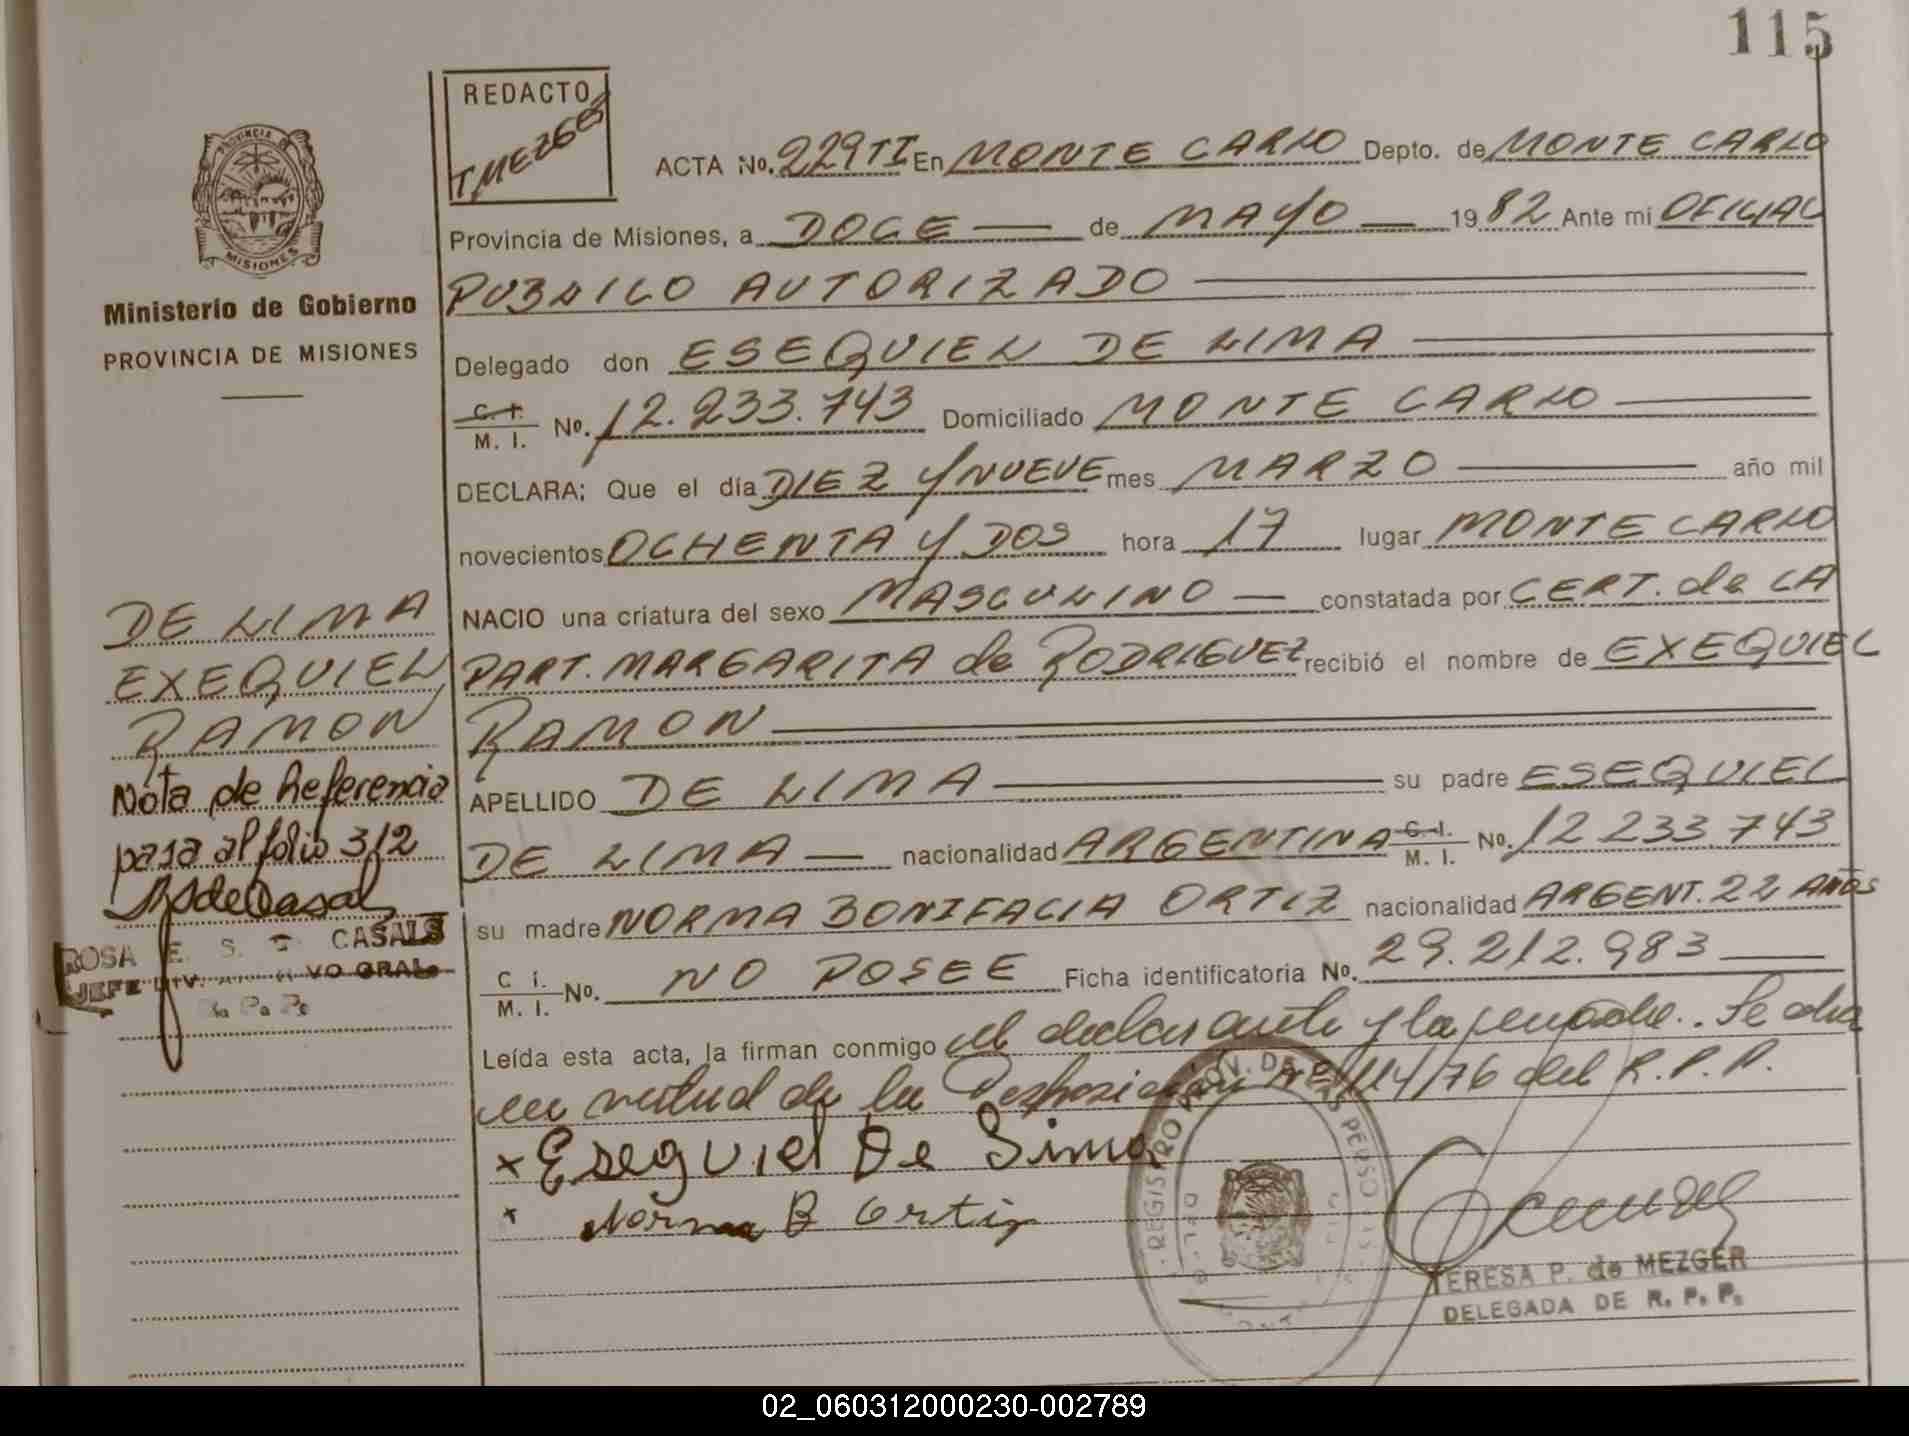 115
REDACTO
T. MEZGER
PROVINCIA DE
MISIONES
Ministerio de Gobierno
PROVINCIA DE MISIONES
ACTA No. 229 TI En MONTE CARLO Depto. de MONTE CARLO
Provincia de Misiones, a DOCE de MAYO 1982 Ante mi OFICIAL
PUBLICO AUTORIZADO
Delegado don ESEQUIEL DE LIMA
C. I. M. I. No. 12.233.743 Domiciliado MONTE CARLO
DECLARA: Que el día DIEZ Y NUEVE mes MARZO año mil
novecientos OCHENTA Y DOS hora 17 lugar MONTE CARLO
NACIO una criatura del sexo MASCULINO constatada por CERT. de LA
PART. MARGARITA de RODRIGUEZ recibió el nombre de EXEQUIEL
RAMON
APELLIDO DE LIMA su padre ESEQUIEL
DE LIMA nacionalidad ARGENTINA C. I. M. I. No. 12 233 743
su madre NORMA BONIFACIA ORTIZ nacionalidad ARGENT. 22 AÑOS
C. I. M. I. No. NO POSEE Ficha identificatoria No. 29.212.983
Leída esta acta, la firman conmigo el declarante y la Se
en virtud de la Disposición Nº 114/76 del R.P.P.
x Esequiel De Lima
x Norma B Ortiz
TERESA P. de MEZGER
DELEGADA DE R. P. P.
REGISTRO PROV. DE LAS PERSONAS
DE LIMA
EXEQUIEL
RAMON
Nota de Referencia
pasa al folio 312
RSdeCasals
ROSA E. S. CASALS
JEFE DIV. ARCHIVO GRAL.
R. P. P.
02_060312000230-002789